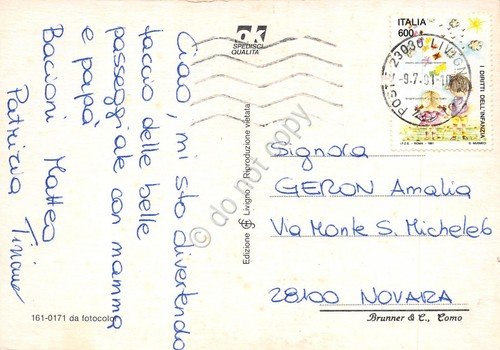 Ciao, mi sto divertendo
faccio delle belle
passeggiate con mamma
e papà
Bacioni Matteo
Patrizia Tiziano
ok
SPEDISCI
QUALITÀ
Edizione Livigno - Riproduzione vietata
161-0171 da fotocolor
ITALIA
600
I DIRITTI DELL'INFANZIA
I.P.Z.S. - ROMA - 1991
POSTE 23030 LIVIGNO
-9.7.91-10
Signora
GERON Amalia
Via Monte S. Michele 6
28100 NOVARA
Brunner & C., Como
© do not copy